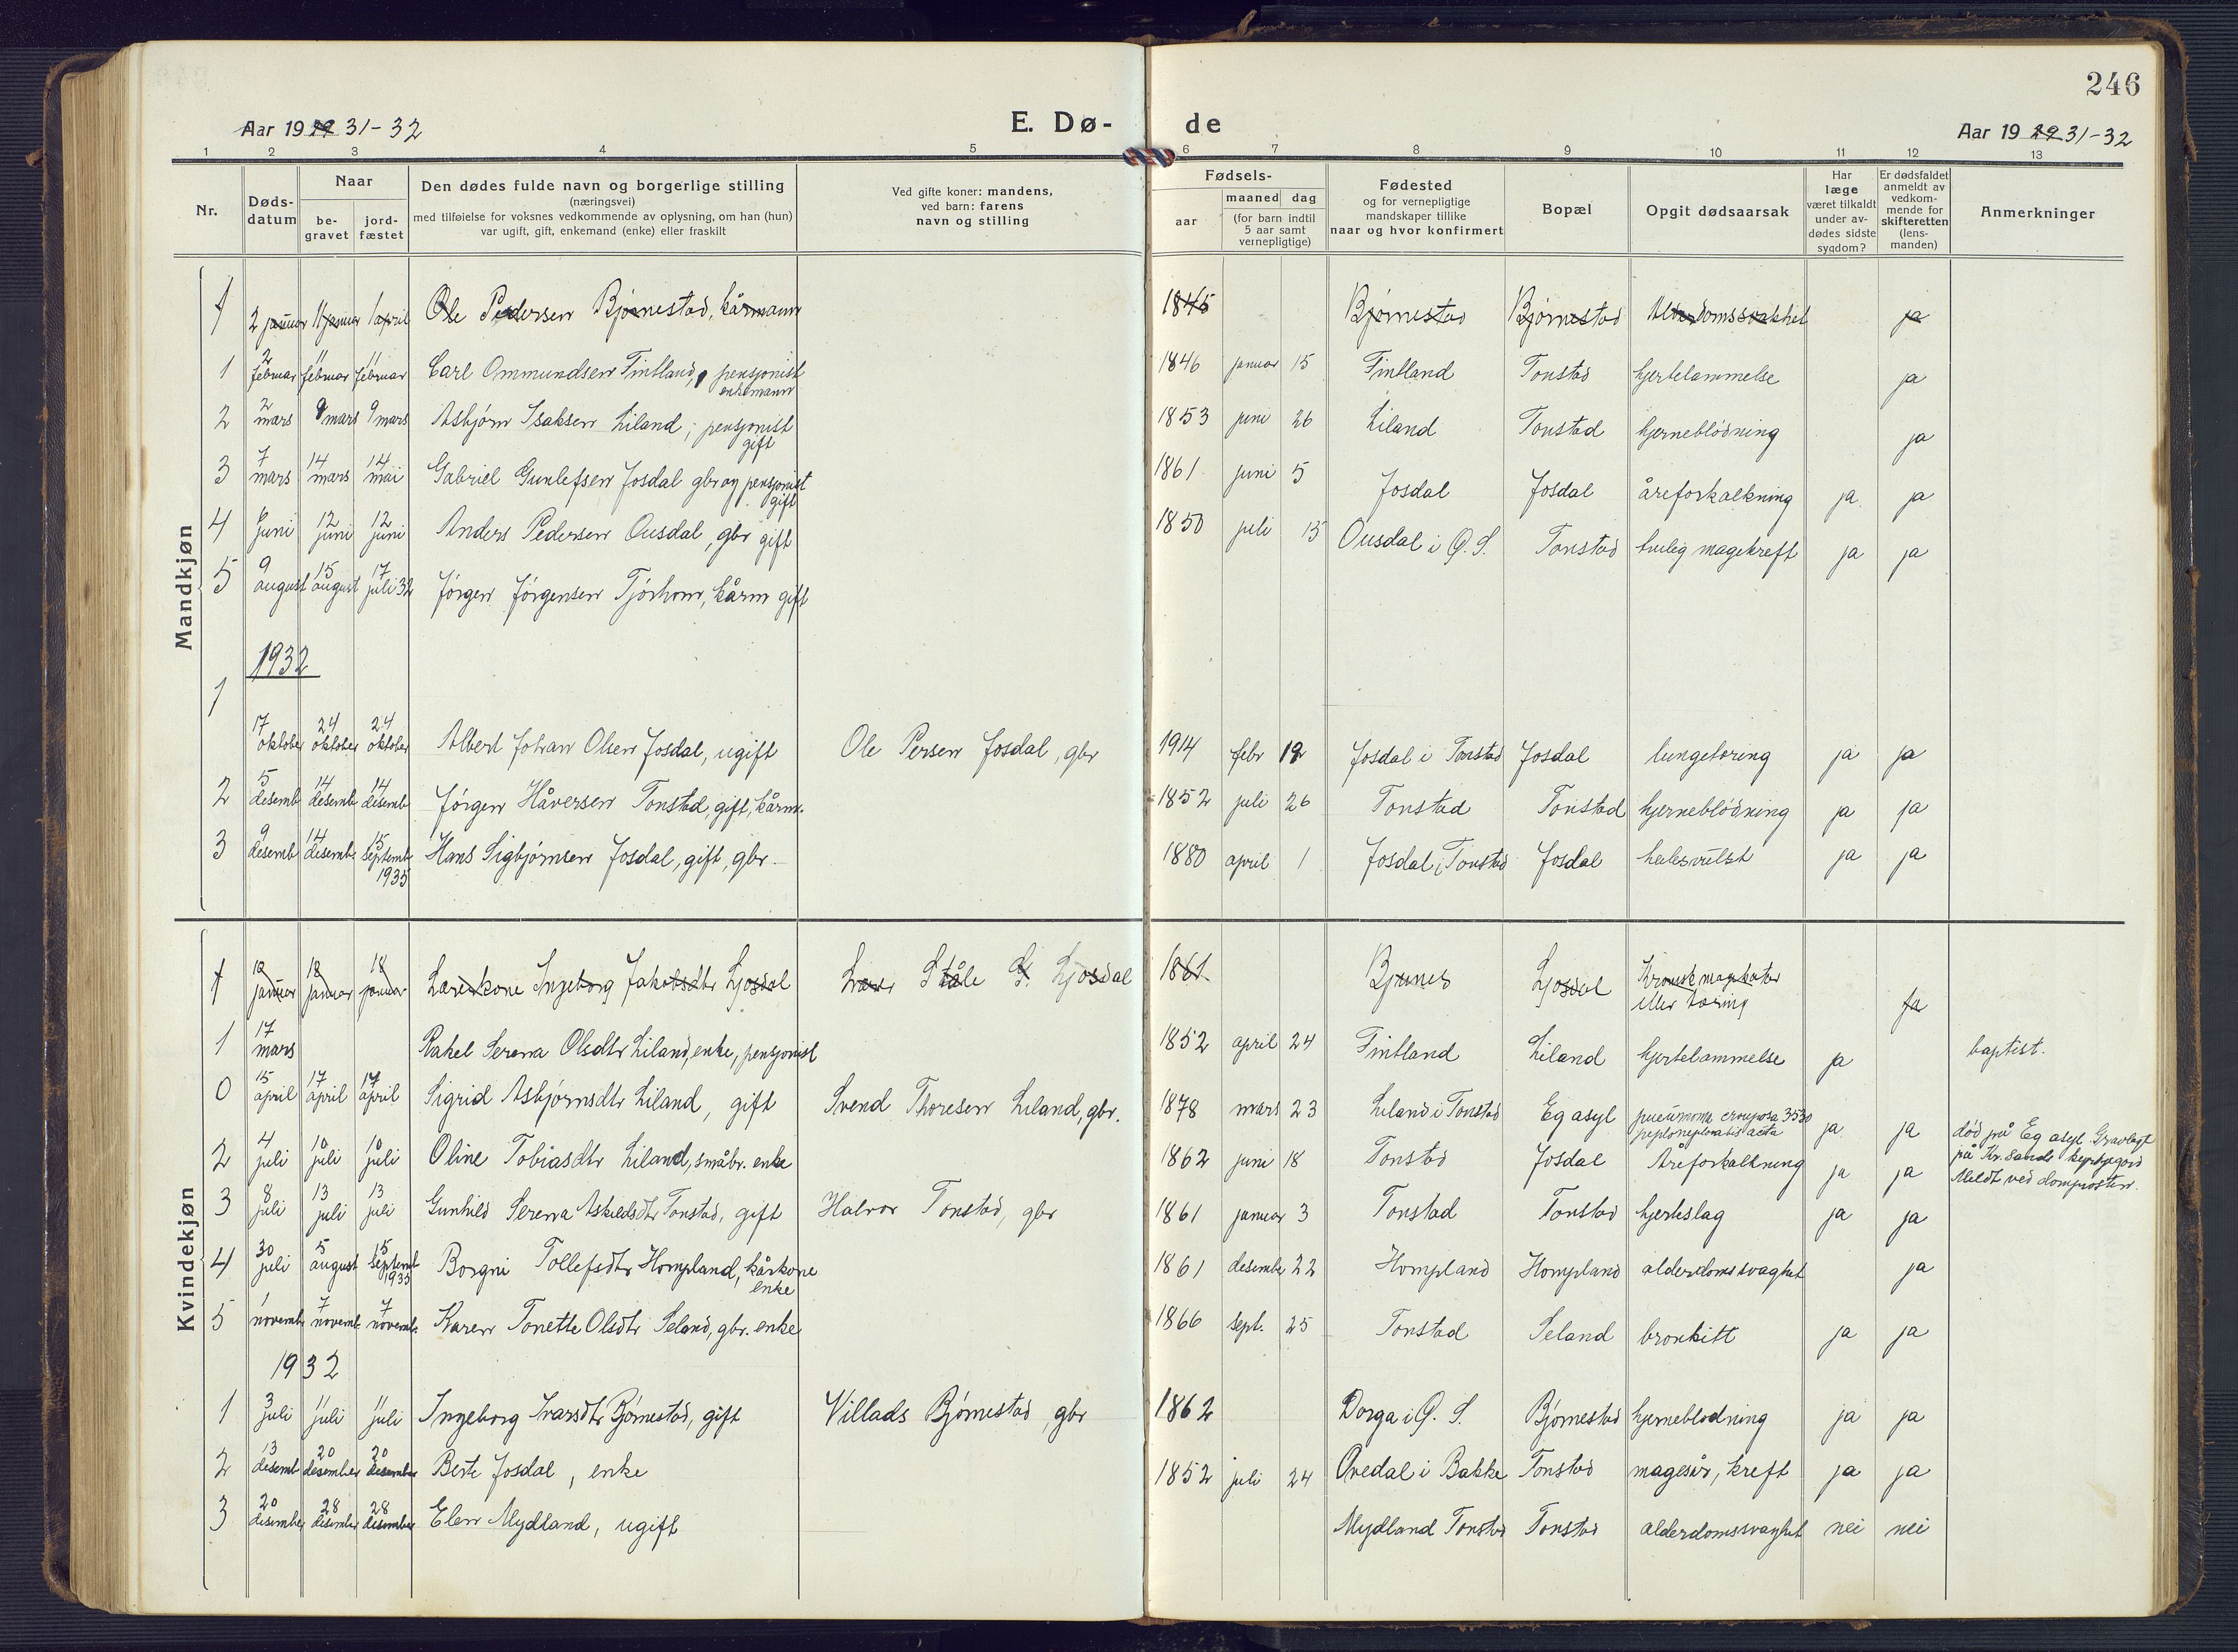 246
Aar 19 29 31-32
E. Dø-
de
Aar 19 29 31-32
1 2 3 4 5 6 7 8 9 10 11 12 13
Nr.
Døds-
datum
Naar
be-
gravet
jord-
fæstet
Den dødes fulde navn og borgerlige stilling
(næringsvei)
med tilføielse for voksnes vedkommende av oplysning, om han (hun)
var ugift, gift, enkemand (enke) eller fraskilt
Ved gifte koner: mandens,
ved barn: farens
navn og stilling
Fødsels-
aar
maaned dag
(for barn indtil
5 aar samt
vernepligtige)
Fødested
og for vernepligtige
mandskaper tillike
naar og hvor konfirmert
Bopæl
Opgit dødsaarsak
Har
læge
været tilkaldt
under av-
dødes sidste
sygdom?
Er dødsfaldet
anmeldt av
vedkom-
mende for
skifteretten
(lens-
manden)
Anmerkninger
Mandkjøn
1 2 januar 11 januar 1 april Ole Pedersen Bjørnestad, kårmann 1845 Bjørnestad Bjørnestad Alderdomssvakhet ja
1 2 februar 11 februar 11 februar Carl Ommundsen Fintland, pensjonist enkemann 1846 januar 15 Fintland Tonstad hjertelammelse ja
2 2 mars 9 mars 9 mars Asbjørn Isaksen Liland, pensjonist gift 1853 juni 26 Liland Tonstad hjerneblødning ja
3 7 mars 14 mars 14 mai Gabriel Gunlefsen Josdal gbr og pensjonist gift 1861 juni 5 Josdal Josdal åreforkalkning ja ja
4 6 juni 12 juni 12 juni Anders Pedersen Ousdal, gbr gift 1850 juli 15 Ousdal i Ø. S. Tonstad trulig magekreft ja ja
5 9 august 15 august 17 juli 32 Jørgen Jørgensen Tjørhom, kårm gift
1932
1 17 oktober 24 oktober 24 oktober Albert Johan Olsen Josdal, ugift Ole Persen Josdal, gbr 1914 febr 12 Josdal i Tonstad Josdal lungetæring ja ja
2 5 desemb 14 desemb 14 desemb Jørgen Håversen Tonstad, gift, kårm. 1852 juli 26 Tonstad Tonstad hjerneblødning ja ja
3 9 desemb 14 desemb 15 septemb 1935 Hans Sigbjørnsen Josdal, gift, gbr. 1880 april 1 Josdal i Tonstad Josdal halssvulst ja ja
Kvindekjøn
1 januar 18 januar 18 januar Ingeborg Jakobsdtr Ljosdal Ståle Ljosdal 1861 Bjunes Ljosdal Kronisk magekatar eller tæring ja
1 17 mars Rakel Serena Olsdtr Liland, enke, pensjonist 1852 april 24 Fintland Liland hjertelammelse ja baptist.
0 15 april 17 april 17 april Sigrid Asbjørnsdtr Liland, gift Svend Thoresen Liland, gbr. 1878 mars 23 Liland i Tonstad Eg asyl pneumonia crouposa ja ja død på Eg asyl. Gravlagt
på Kr.sands kyrkjegård
Meldt ved domprosten.
2 4 juli 10 juli 10 juli Oline Tobiasdtr Liland, småbr. enke 1862 juni 18 Tonstad Josdal Åreforkalkning ja ja
3 8 juli 13 juli 13 juli Gunhild Serena Askildsdtr Tonstad, gift Halvor Tonstad, gbr 1861 januar 3 Tonstad Tonstad hjerteslag ja ja
4 30 juli 5 august 15 septemb 1935 Borgni Tollefsdtr Hompland, kårkone enke 1861 desembr 22 Hompland Hompland alderdomssvaghet ja
5 1 novemb 7 novemb. 7 novemb. Karen Tonette Olsdtr Seland, gbr. enke 1866 sept. 25 Tonstad Seland bronkitt ja ja
1932
1 3 juli 11 juli 11 juli Ingeborg Ivarsdtr Bjørnestad, gift Villads Bjørnestad, gbr 1862 Dorga i Ø. S. Bjørnestad hjerneblodning ja ja
2 13 desemb 20 desember 20 desember Berte Josdal, enke 1852 juli 24 Ovedal i Bakke Tonstad magesår, kreft ja ja
3 20 desember 28 desember 28 desember Elen Mydland, ugift Mydland Tonstad Tonstad alderdomssvaghet nei nei